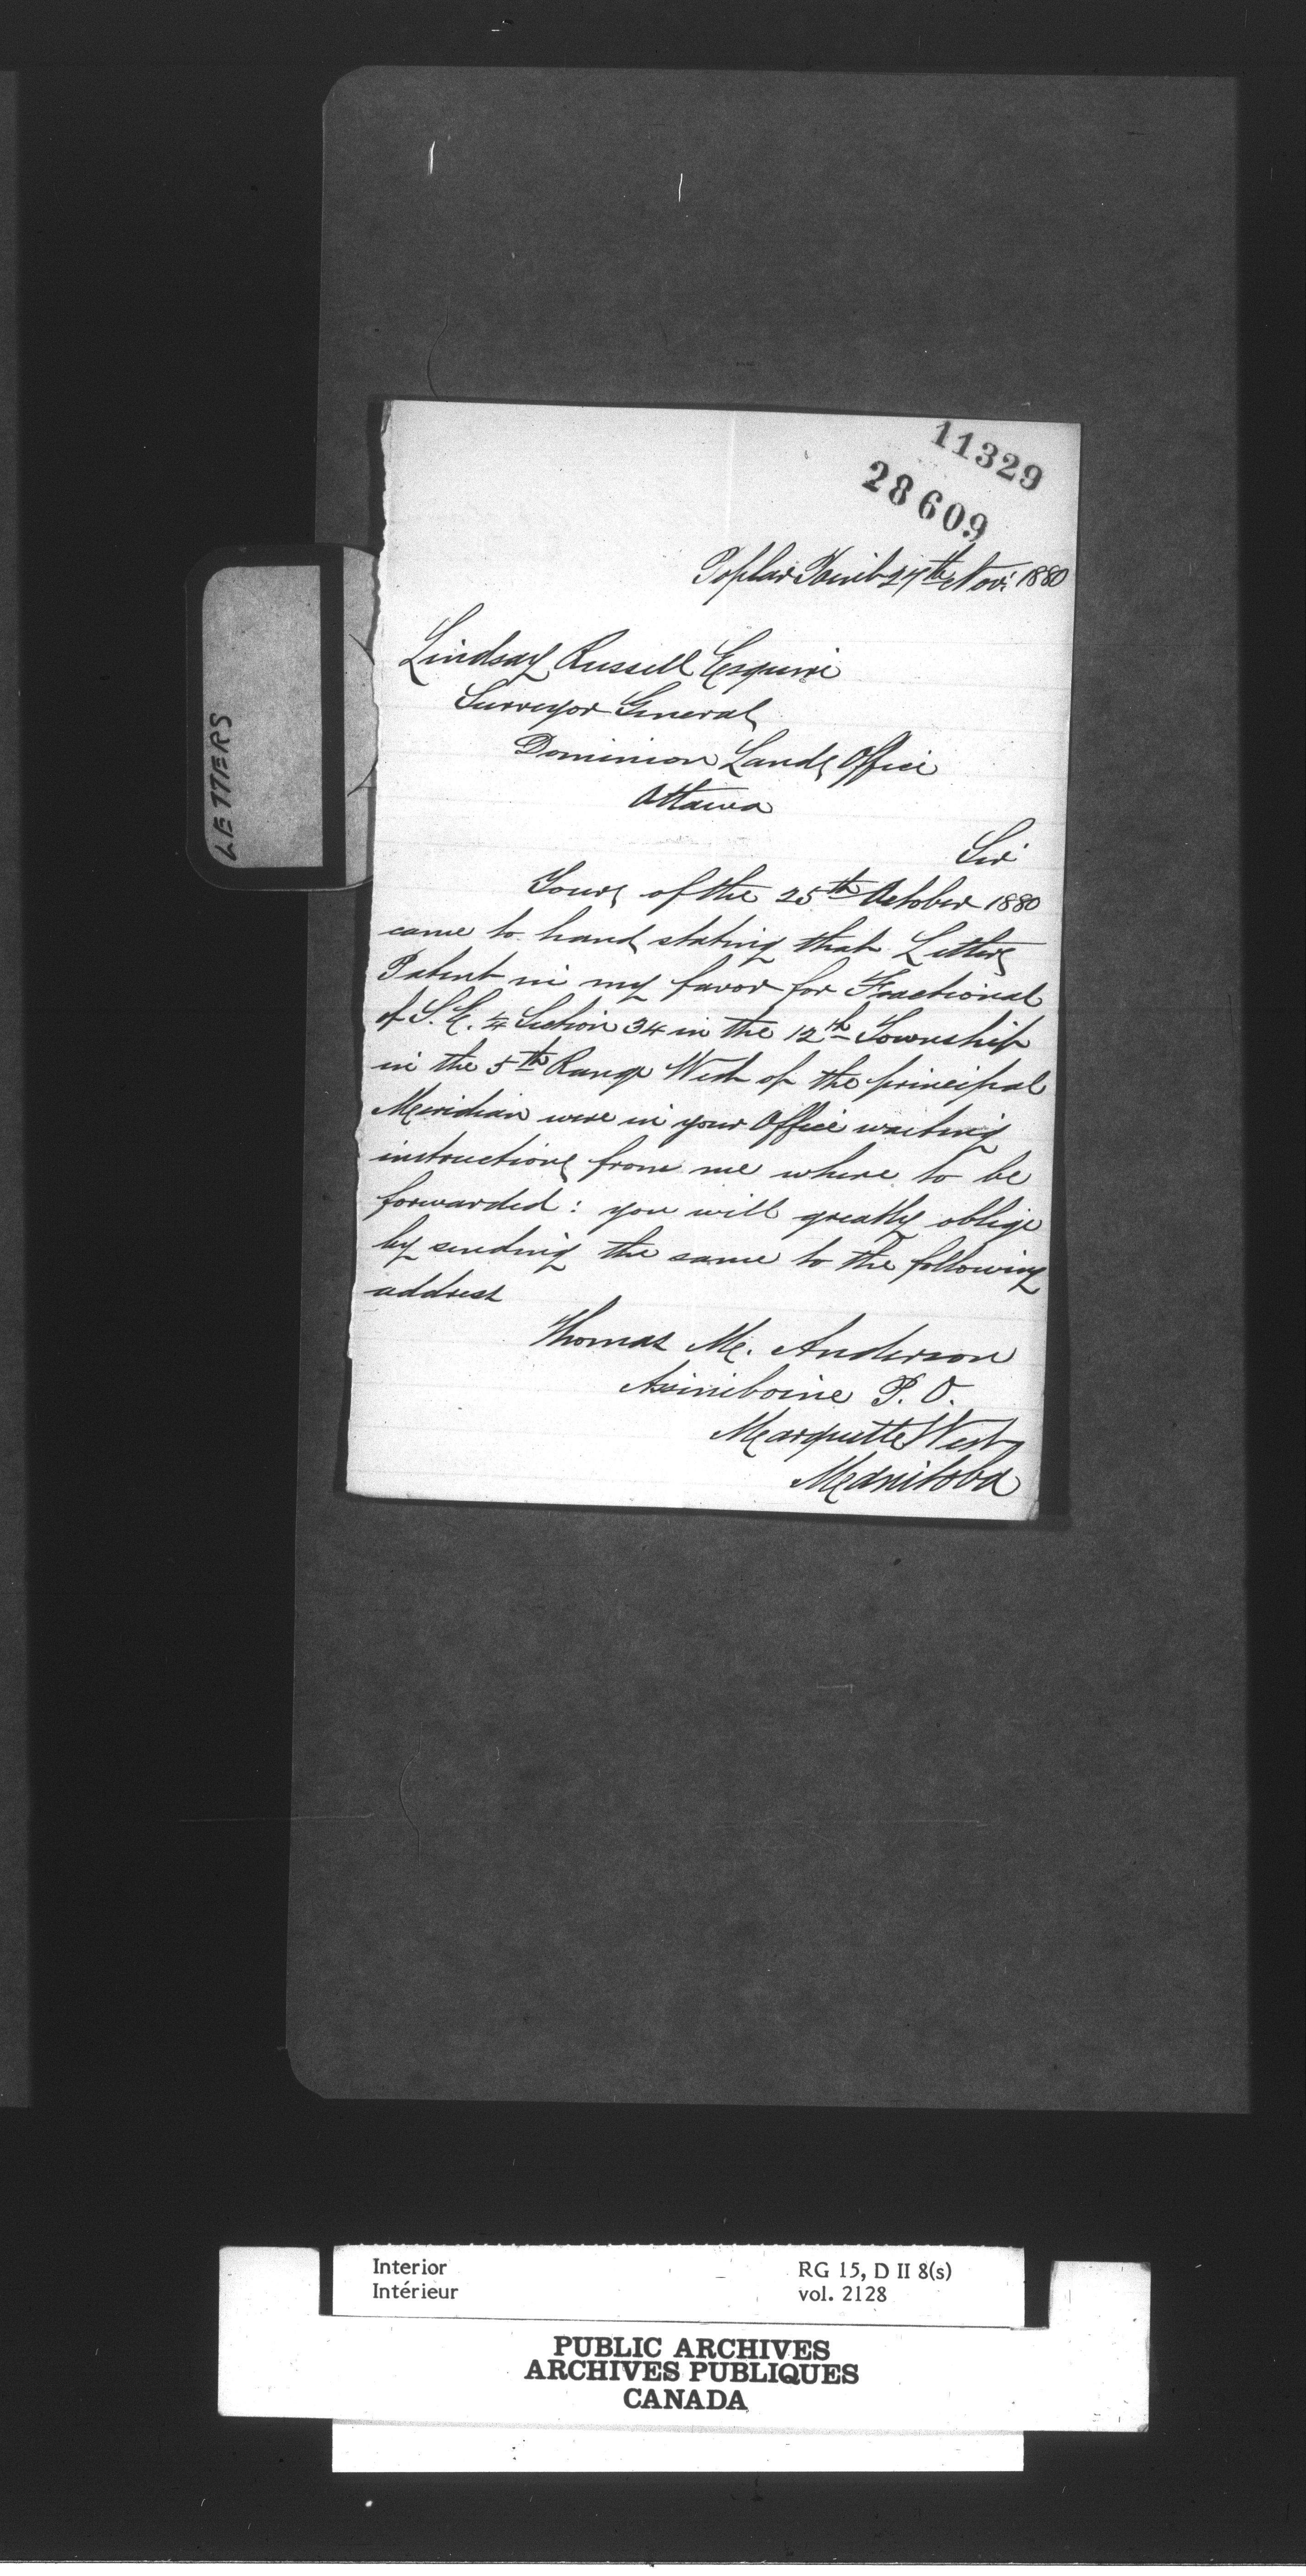 11329
28609
Poplar Point 27th Nov: 1880
Lindsay Russell Esquire
Surveyor General
Dominion Lands Office
Ottawa
Sir
Yours of the 25th October 1880
came to hand stating that Letters
Patent in my favor for Fractional
of S. E. 1/4 Section 34 in the 12th Township
in the 5th Range West of the principal
Meridian were in your Office waiting
instructions from me where to be
forwarded: you will greatly oblige
by sending the same to the following
address
Thomas Mc. Anderson
Assiniboine P. O.
Marquette West
Manitoba
LETTERS
Interior
Intérieur
RG 15, D II 8(s)
vol. 2128
PUBLIC ARCHIVES
ARCHIVES PUBLIQUES
CANADA